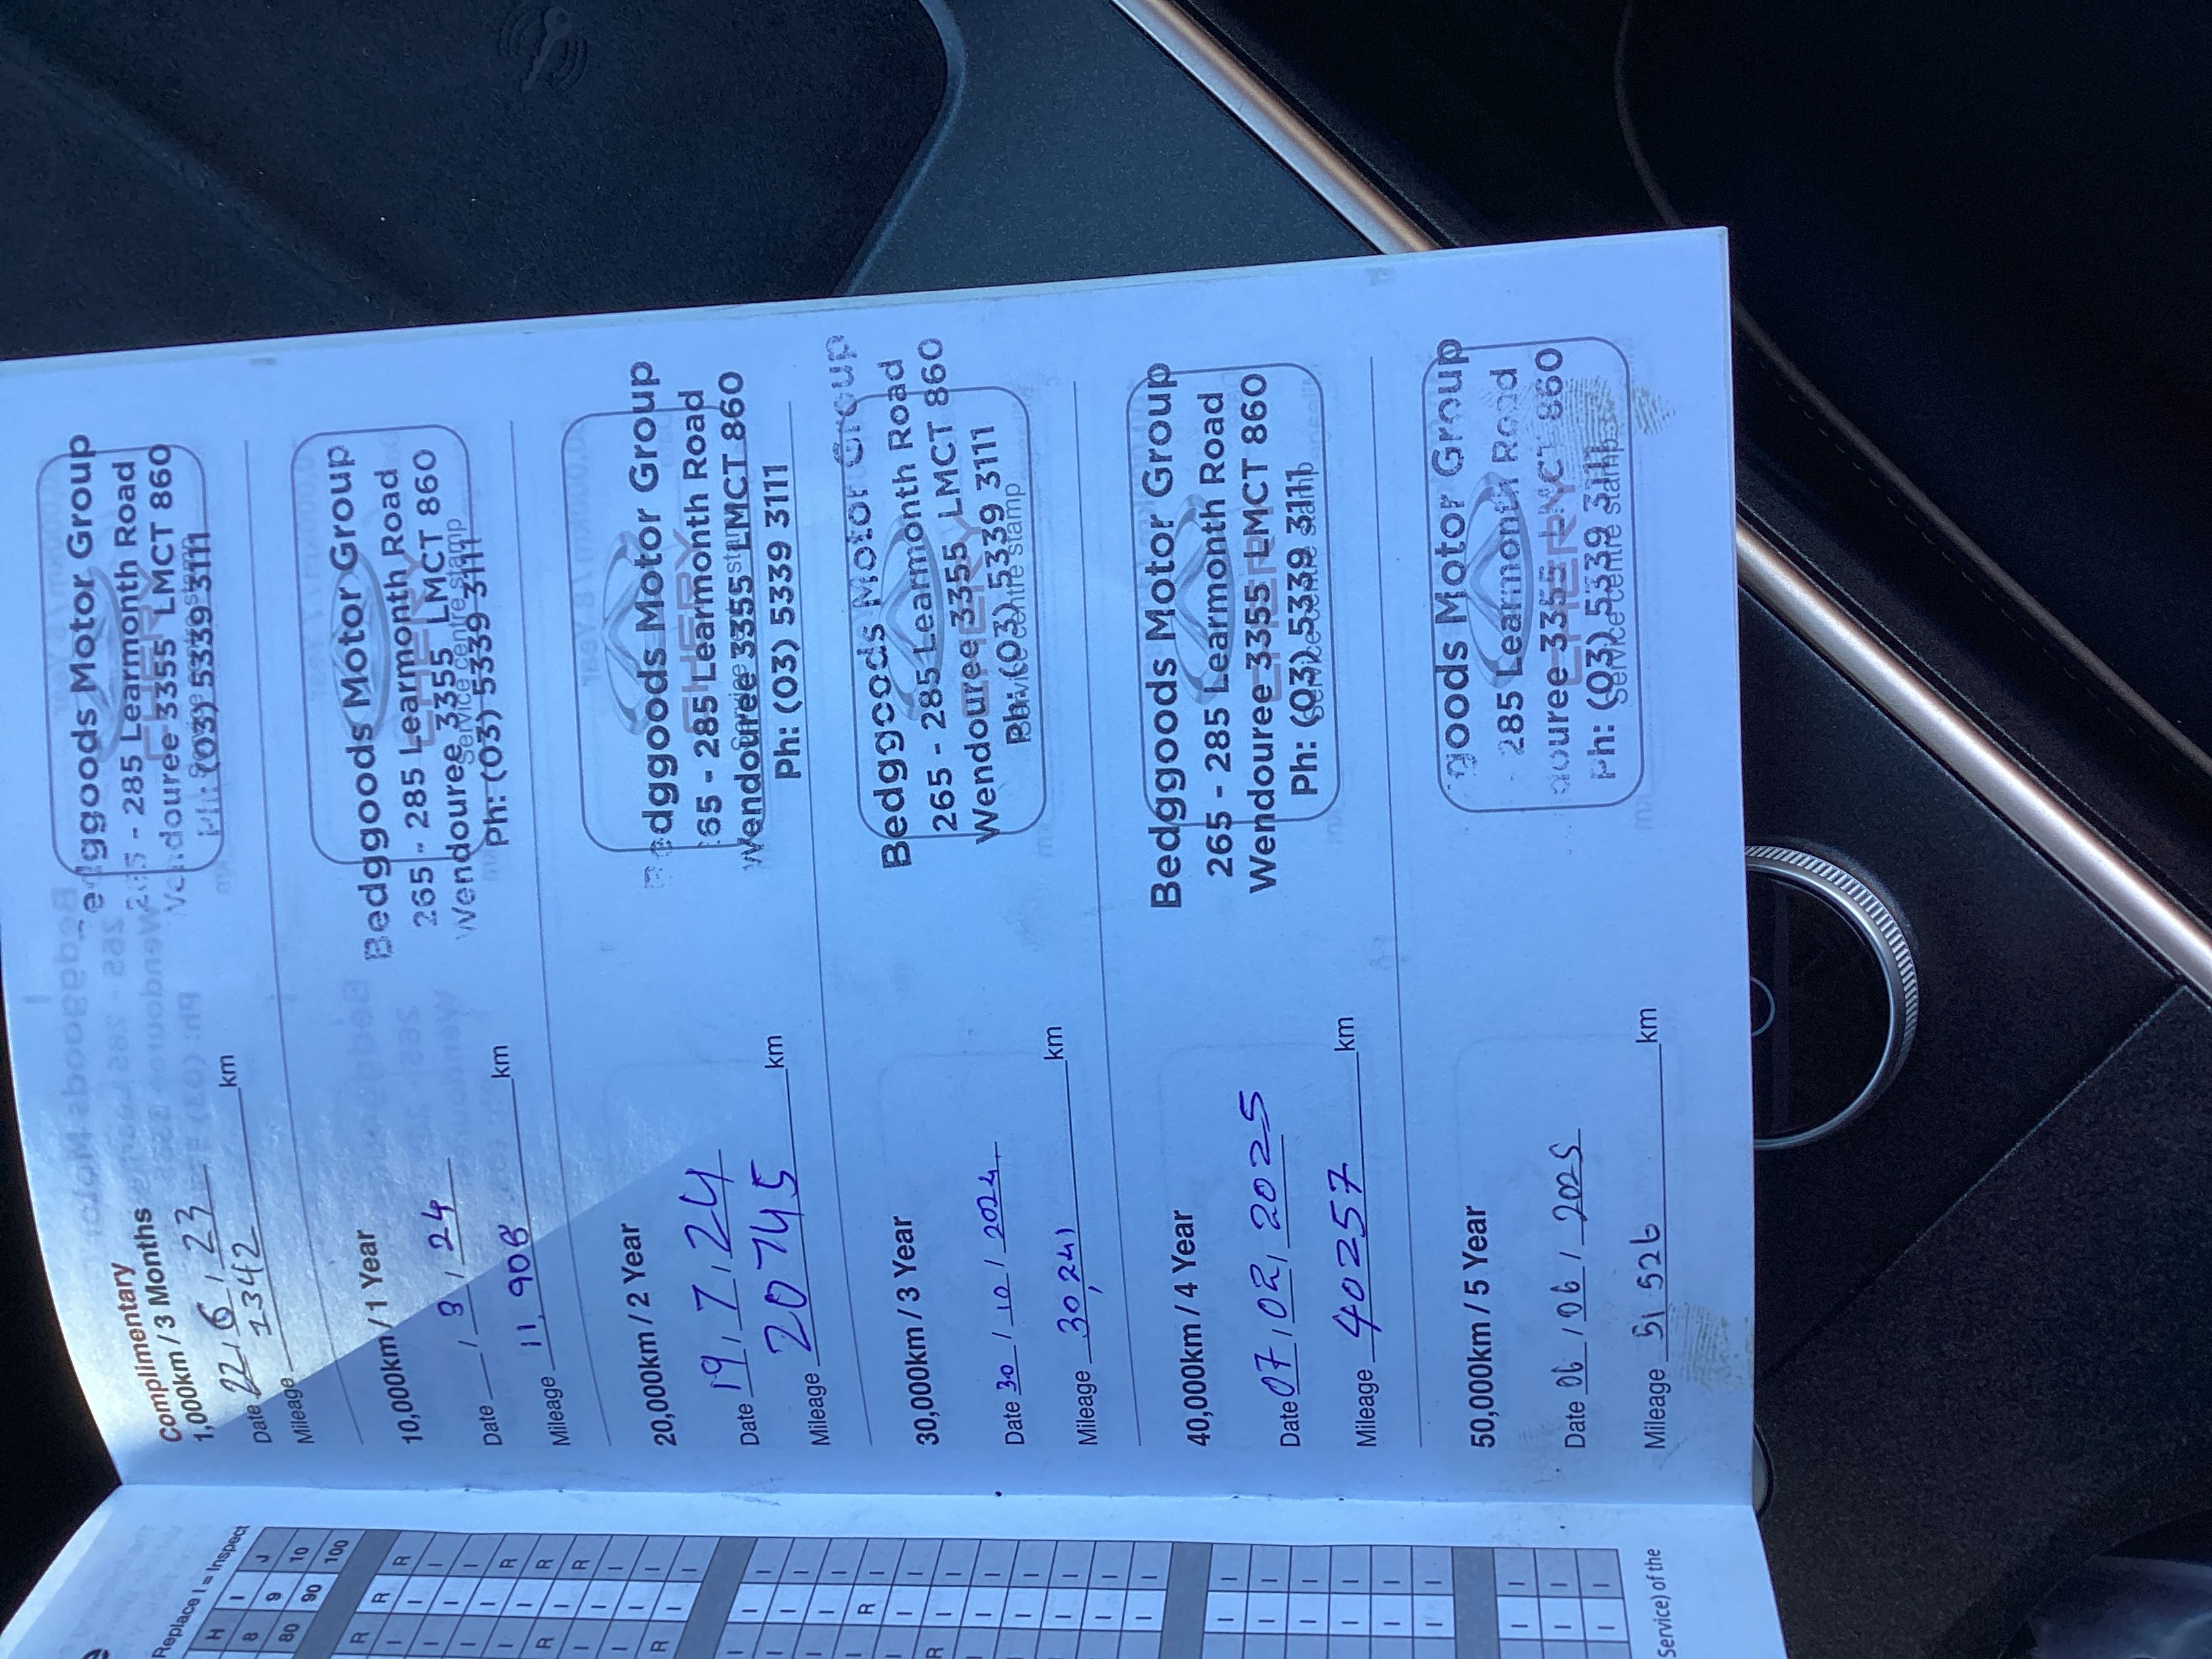 Complimentary
1,000km / 3 Months
Date 22 / 6 / 23
Mileage 1342 km
edggoods Motor Group
265 - 285 Learmonth Road
Wendouree 3355 LMCT 860
Ph: (03) 5339 3111
10,000km / 1 Year
Date / 3 / 24
Mileage 11,908 km
Bedggoods Motor Group
265 - 285 Learmonth Road
Wendouree 3355 LMCT 860
Ph: (03) 5339 3111
Service centre stamp
20,000km / 2 Year
Date 19 / 7 / 24
Mileage 20745 km
edggoods Motor Group
65 - 285 Learmonth Road
Wendouree 3355 LMCT 860
Ph: (03) 5339 3111
CHERY
30,000km / 3 Year
Date 30 / 10 / 2024
Mileage 30,241 km
Bedggoods Motor Group
265 - 285 Learmonth Road
Wendouree 3355 LMCT 860
Ph: (03) 5339 3111
CHERY
Service centre stamp
40,000km / 4 Year
Date 07 / 02 / 2025
Mileage 40257 km
Bedggoods Motor Group
265 - 285 Learmonth Road
Wendouree 3355 LMCT 860
Ph: (03) 5339 3111
CHERY
Service centre stamp
50,000km / 5 Year
Date 06 / 06 / 2025
Mileage 51 526 km
goods Motor Group
285 Learmonth Road
ouree 3355 LMCT 860
Ph: (03) 5339 3111
CHERY
Service centre stamp
Replace I = Inspect
H I J
8 9 10
80 90 100
Service) of the